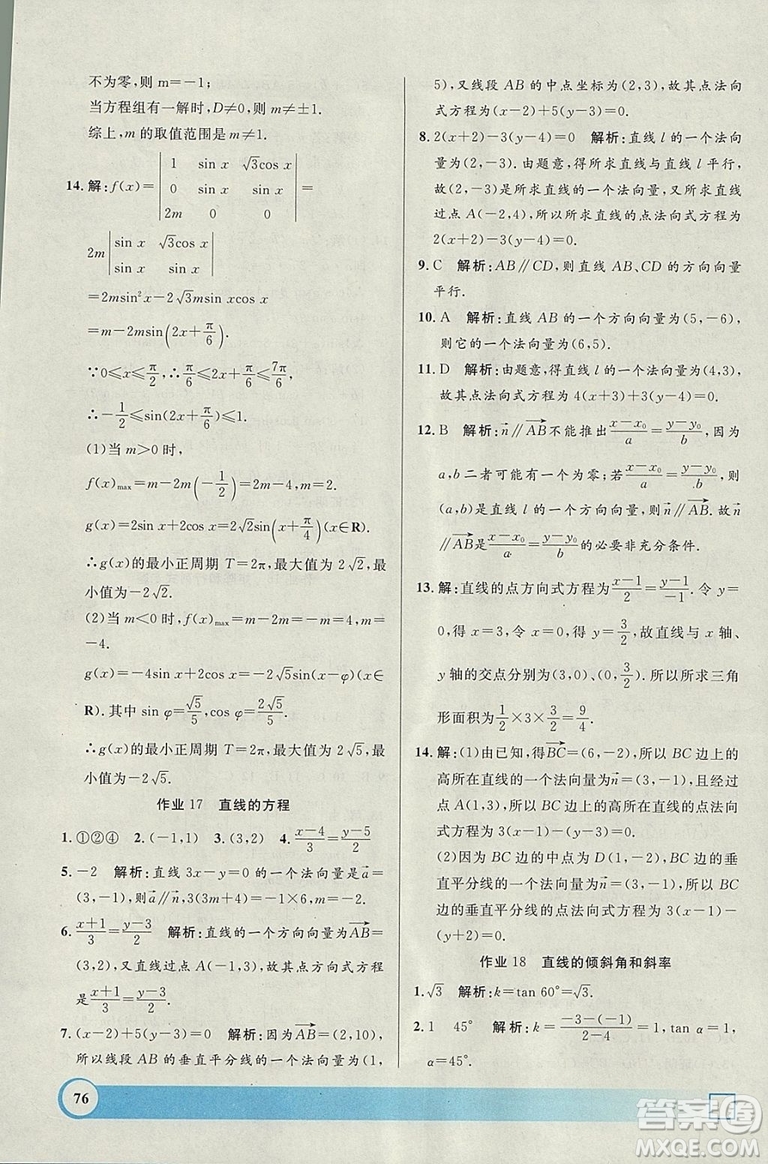 不为零,则 m=-1;
当方程组有一解时,D≠0,m≠±1.
综上,m 的取值范围是 m≠-1.
14. 解:f(x)=| 1 sin x √3cos x ; 0 sin x sin x ; 2m 0 0 |=
2m| sin x √3cos x ; sin x sin x |
=2msin²x-2√3msin xcos x
=m-2msin(2x+π/6).
∵0≤x≤π/2,∴π/6≤2x+π/6≤7π/6,
∴-1/2≤sin(2x+π/6)≤1.
(1)当 m>0 时,
f(x)max=m-2m(-1/2)=2m=4,m=2.
g(x)=2sin x+2cos x=2√2sin(x+π/4)(x∈R).
∴g(x)的最小正周期 T=2π,最大值为 2√2,
最小值为-2√2.
(2)当 m<0 时,f(x)max=m-2m=-m=4,m=
-4.
g(x)=-4sin x+2cos x=-2√5sin(x-φ)(x∈
R).其中 sin φ=√5/5,cos φ=2√5/5.
∴g(x)的最小正周期 T=2π,最大值为 2√5,
最小值为-2√5.
作业 17 直线的方程
1. ①②④ 2. (-1,1) 3. (3,2) 4. (x-4)/3=(y-5)/2
5. -2 解析:直线 3x-y=0 的一个法向量是a⃗=
(3,-1),所以a⃗∥n⃗,3(3m+4)=-(1-m),m=-2.
6. (x+1)/3=(y-3)/-2 解析:直线的一个方向向量为AB⃗=
(3,-2),又直线过点 A,故其点方向式方程为
(x+1)/3=(y-3)/-2.
7. (x-2)+5(y-3)=0 解析:因为AB⃗=(2,10),
所以线段 AB 的垂直平分线的一个法向量为(1,
5),又线段 AB 的中点坐标为(2,3),故其点法向
式方程为(x-2)+5(y-3)=0.
8. 2(x+2)-3(y-4)=0 解析:直线 l 的一个法向
量为(2,-3).由题意,得所求直线与直线 l 平行,
故(2,-3)是所求直线的一个法向量,又所求直线
过点 A(-2,4),所以所求直线的点法向式方程为
2(x+2)-3(y-4)=0.
9. C 解析:AB∥CD,则直线 AB、CD 的方向向量
平行.
10. A 解析:直线 AB 的一个方向向量为(5,-6),
则它的一个法向量为(6,5).
11. D 解析:由题意,得直线 l 的一个法向量为(4,3),
故其点法向式方程为 4(x+3)+3(y-4)=0.
12. B 解析:n⃗∥AB⃗不能推出(x-x₀)/a=(y-y₀)/b,因为
a,b 二者可能有一个为零;若(x-x₀)/a=(y-y₀)/b,则
(a,b)是直线 l 的一个方向向量,n⃗∥AB⃗.故n⃗
∥AB⃗是(x-x₀)/a=(y-y₀)/b的必要非充分条件.
13. 解:直线的点方向式方程为(x-1)/2=(y-1)/-1.令 y=
0,得 x=3,令 x=0,得 y=3/2,故直线与 x 轴、
y 轴的交点分别为(3,0)、(0,3/2).所以所求三角
形面积为1/2×3×3/2=9/4.
14. 解:(1)由已知,得BC⃗=(6,3),所以 BC 边上的
高所在直线的一个法向量为n⃗=(2,1),又直线过
点 A(1,3),所以 BC 边上的高所在直线的点法向
式方程为 2(x-1)+(y-3)=0.
(2)因为 BC 边的中点为 D(1,-2),BC 边的垂
直平分线的一个法向量为n⃗=(2,1),所以 BC 边
的垂直平分线的点法向式方程为 2(x-1)+
(y+2)=0.
作业 18 直线的倾斜角和斜率
1. √3 解析:k=tan 60°=√3.
2. 1 45° 解析:k=(-3-(-1))/(2-4)=1,tan α=1,
α=45°.
76
答案圈
MXQE.COM